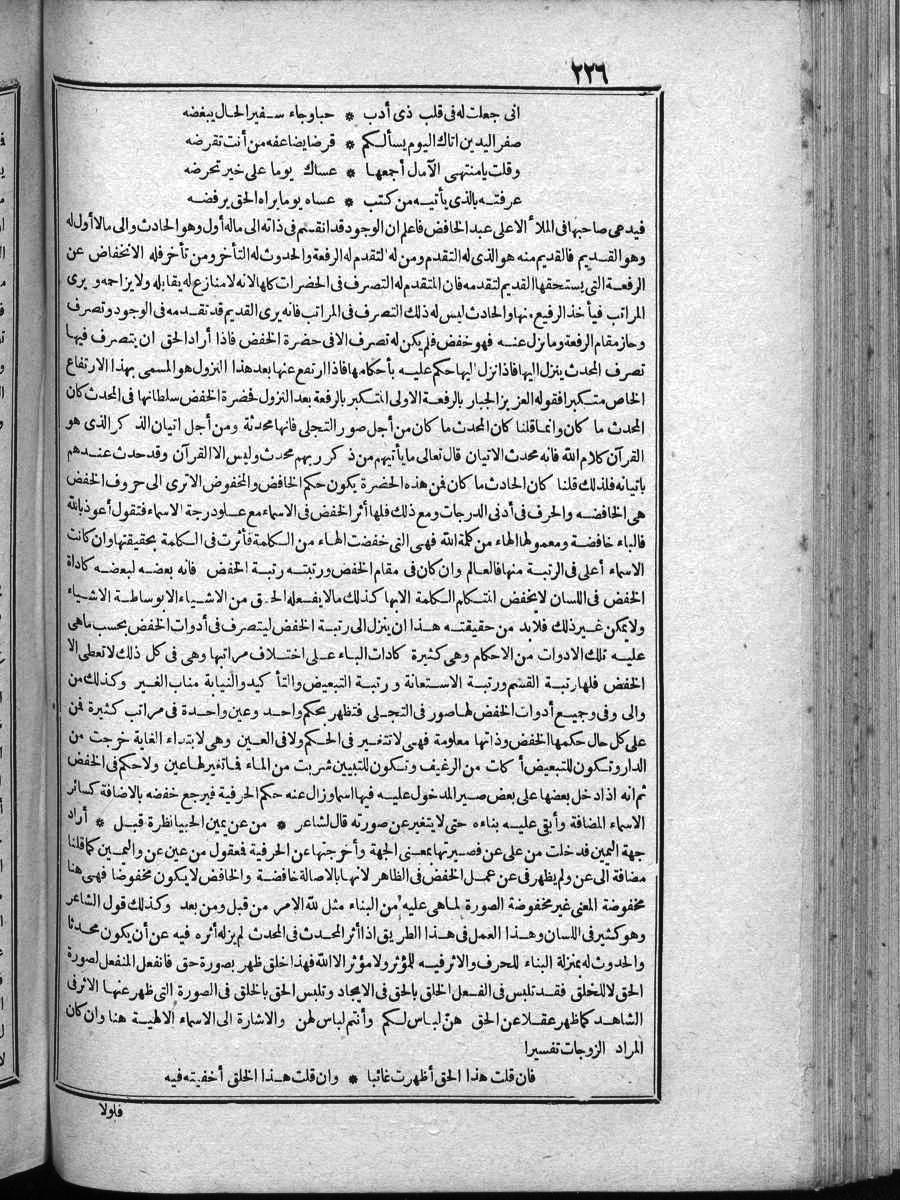 ٢٢٦
انى جعلت له فى قلب ذى أدب * حبا وجاء سفير الحال يبغضه
صفر اليدين اتاك اليوم يسألكم * قرضا يضاعفه من أنت تقرضه
وقلت يا منتهى الآمال أجمعها * عساك يوما على خير تحرضه
عرفته بالذى يأتيه من كتب * عساه يوما يراه الحق يرفضه
فيدعى صاحبها فى الملأ الاعلى عبد الخافض فاعلم ان الوجود قد انقسم فى ذاته الى ماله أول وهو الحادث والى مالا أول له
وهو القديم فالقديم منه هو الذى له التقدم ومن له التقدم له الرفعة والحدوث له التأخر ومن تأخر فله الانخفاض عن
الرفعة التى يستحقها القديم لتقدمه فان المتقدم له التصرف فى الحضرات كلها لانه لا منازع له يقابله ولا يزاحمه ويرى
المراتب فيأخذ الرفيع منها والحادث ليس له ذلك التصرف فى المراتب فانه يرى القديم قد تقدمه فى الوجود وتصرف
وحاز مقام الرفعة وما نزل عنه فهو خفض فلم يكن له تصرف الا فى حضرة الخفض فاذا أراد الحق ان يتصرف فيها
تصرف المحدث ينزل اليها فاذا نزل اليها حكم عليه بأحكامها فاذا ارتفع عنها بعد هذا النزول هو المسمى بهذا الارتفاع
الخاص متكبرا فقوله العزيز الجبار بالرفعة الاولى المتكبر بالرفعة بعد النزول فحضرة الخفض سلطانها فى المحدث كان
المحدث ما كان وانما قلنا كان المحدث ما كان من أجل صور التجلى فانها محدثة ومن أجل اتيان الذكر الذى هو
القرآن كلام الله فانه محدث الاتيان قال تعالى ما يأتيهم من ذكر ربهم محدث وليس الا القرآن وقد حدث عندهم
باتيانه فلذلك قلنا كان الحادث ما كان فمن هذه الحضرة يكون حكم الخافض والمخفوض الا ترى الى حروف الخفض
هى الخافضه والحرف فى أدنى الدرجات ومع ذلك فلها أثر الخفض فى الاسماء مع علو درجة الاسماء فتقول أعوذ بالله
فالباء خافضة ومعمولها الهاء من كلمة الله فهى التى خفضت الهاء من الكلمة فأثرت فى الكلمة بحقيقتها وان كانت
الاسماء أعلى فى الرتبة منها فالعالم وان كان فى مقام الخفض ورتبته رتبة الخفض فانه بعضه لبعضه كاداة
الخفض فى اللسان لا يخفض المتكلم الكلمة الا بها كذلك ما لا يفعله الحق من الاشياء الا بوساطة الاشياء
ولا يمكن غير ذلك فلابد من حقيقته هذا ان ينزل الى رتبة الخفض ليتصرف فى أدوات الخفض بحسب ما هى
عليه تلك الادوات من الاحكام وهى كثيرة كادات الباء على اختلاف مراتبها وهى فى كل ذلك لا تعطى الا
الخفض فلها رتبة القسم ورتبة الاستعانة ورتبة التبعيض والتأكيد والنيابة مناب الغير وكذلك من
والى وفى وجميع أدوات الخفض لها صور فى التجلى فتظهر بحكم واحد وعين واحدة فى مراتب كثيرة فمن
على كل حال حكمها الخفض وذاتها معلومة فهى لا تتغير فى الحكم ولا فى العين وهى لابتداء الغاية خرجت من
الدار وتكون للتبعيض أكلت من الرغيف وتكون للتبيين شربت من الماء فما تغير لها عين ولا حكم فى الخفض
ثم انه اذا دخل بعضها على بعض صير المدخول عليه فيها اسما وزال عنه حكم الحرفية فيرجع خفضه بالاضافة كسائر
الاسماء المضافة وأبقى عليه بناءه حتى لا يتغير عن صورته قال لشاعر * من عن يمين الحبيا نظرة قبل * أراد
جهة اليمين فدخلت من على عن فصيرتها بمعنى الجهة وأخرجتها عن الحرفية فعقول من عين عن واليمين كما قلنا
مضافة الى عن ولم يظهر فى عن عمل الخفض فى الظاهر لانها بالاصالة خافضة والخافض لا يكون مخفوضا فهى هنا
مخفوضة المعنى غير مخفوضة الصورة لما هى عليه من البناء مثل لله الامر من قبل ومن بعد وكذلك قول الشاعر
وهو كثير فى اللسان وهذا العمل فى هذا الطريق اذا أثر المحدث فى المحدث لم يزله أثره فيه عن أن يكون محدثا
والحدوث له بمنزلة البناء للحرف والاثر فيه للمؤثر ولا مؤثر الا الله فهذا خلق ظهر بصورة حق فانفعل المنفعل لصورة
الحق لا للخلق فقد تلبس فى الفعل الخلق بالحق فى الايجاد وتلبس الحق بالخلق فى الصورة التى ظهر عنها الاثر فى
الشاهد كما ظهر عقلا عن الحق هن لباس لكم وأنتم لباس لهن والاشارة الى الاسماء الالهية هنا وان كان
المراد الزوجات تفسيرا
فان قلت هذا الحق أظهرت غائبا * وان قلت هذا الخلق أخفيته فيه
فلولا